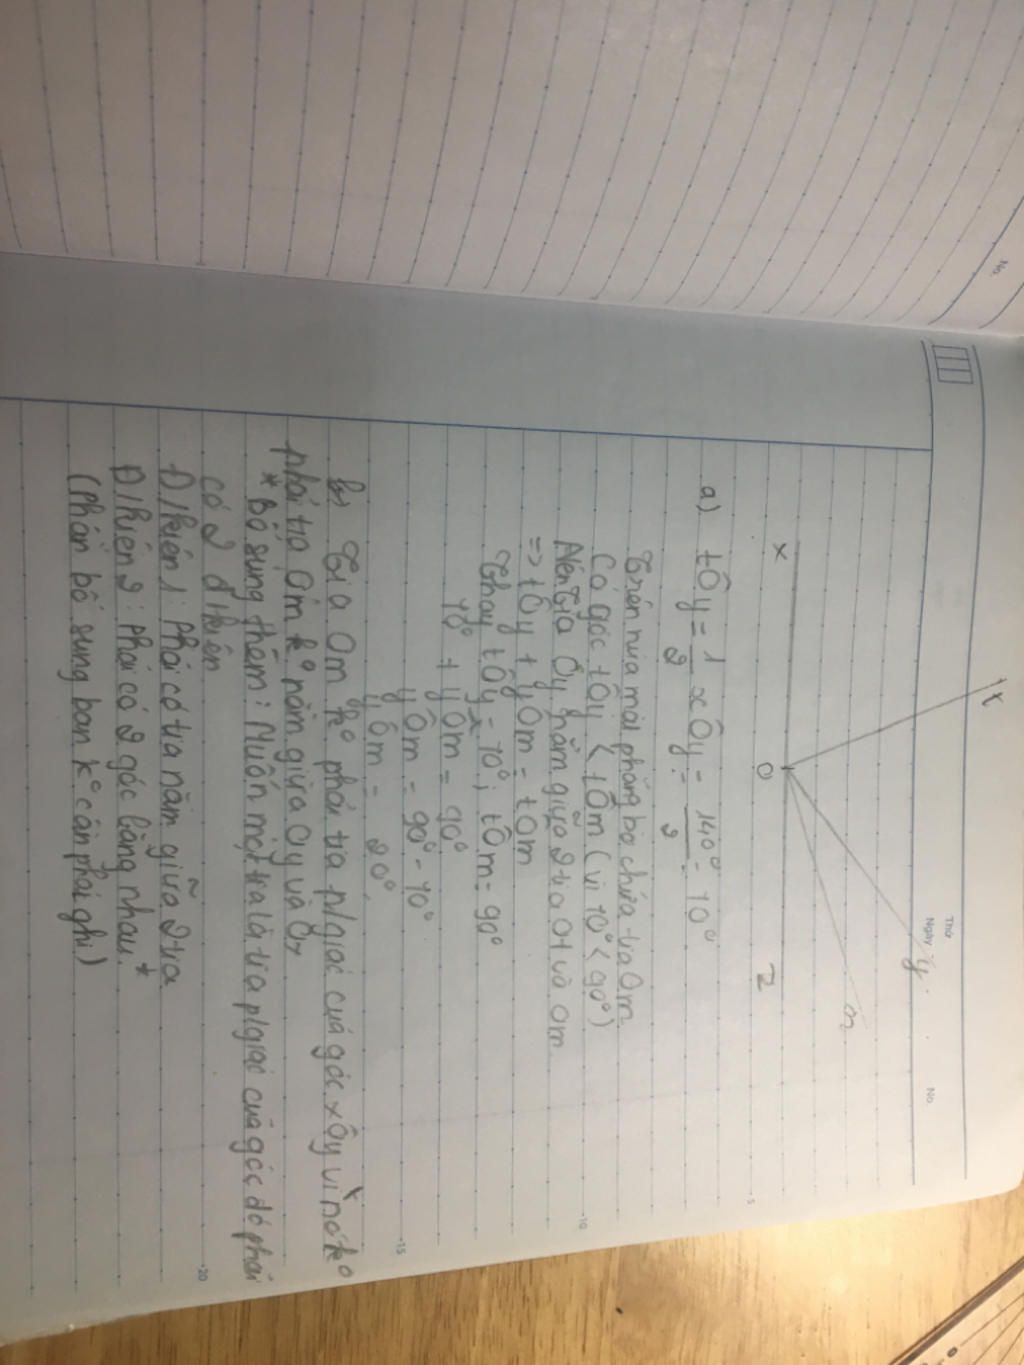 No.
Thứ
Ngày
No.
t
y
m
x
O
z
5
a) tÔy = 1/2 xÔy = 140°/2 = 70°
Trên nửa mặt phẳng bờ chứa tia Om
Có góc tÔy < tÔm (vì 70° < 90°)
Nên tia Oy nằm giữa 2 tia Ot và Om
10
=> tÔy + yÔm = tÔm
Thay tÔy = 70°; tÔm = 90°
70° + yÔm = 90°
yÔm = 90° - 70°
15
yÔm = 20°
b) Tia Om k° phải tia p/giác của góc xÔy vì nó k°
phải tia Om k° nằm giữa Oy và Ox
* Bổ sung thêm: Muốn một tia là tia p/giác của góc đó phải
có 2 đ/kiện
20
Đ/kiện 1: Phải có tia nằm giữa 2 tia
Đ/kiện 2: Phải có 2 góc bằng nhau. *
(Phần bổ sung bạn k° cần phải ghi)